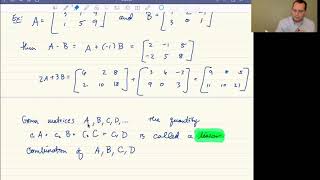 Ex: A = [ 3 1 4 and B = [ 1 2 -1
1 5 9 ] 3 0 1 ]
then A - B = A + (-1) B = [ 2 -1 5
-2 5 8 ]
2A + 3B = [ 6 2 8 + [ 3 6 -3 = [ 9 8 5
2 10 18 ] 9 0 3 ] 11 10 21 ]
Given matrices A, B, C, D, ... the quantity
c₁A + c₂B + c₃C + c₄D is called a linear
combination of A, B, C, D